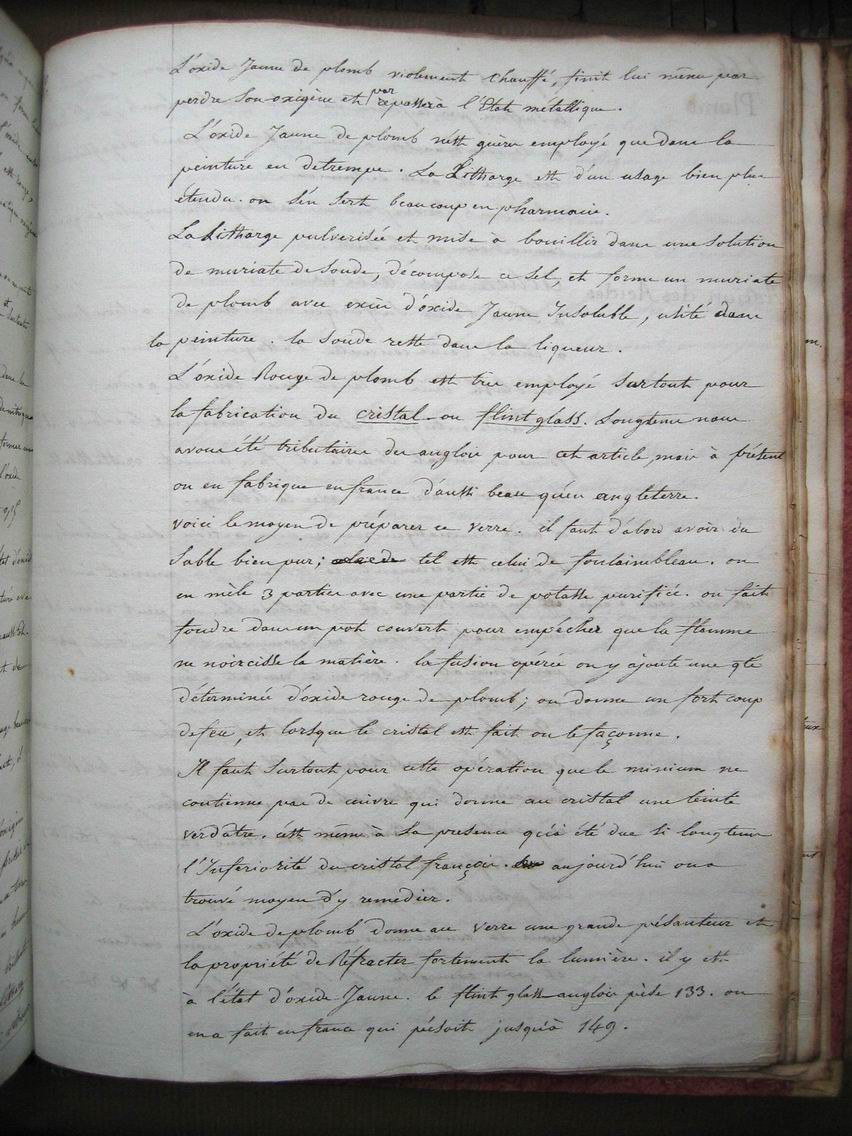 L'oxide Jaune de plomb violement chauffé, finit lui même par
perdre son oxigène et par repasser à l'Etat métallique.
L'oxide Jaune de plomb n'est guère employé que dans la
peinture en detrempe. La Litharge est d'un usage bien plus
étendu. on s'en sert beaucoup en pharmacie.
La Litharge pulverisée et mise à bouillir dans une solution
de muriate de soude, décompose ce sel, et forme un muriate
de plomb avec excès d'oxide Jaune Insoluble, usité dans
la peinture. la soude reste dans la liqueur.
L'oxide Rouge de plomb est très employé surtout pour
la fabrication du cristal ou flint glass. Longtems nous
avons été tributaires des anglois pour cet article, mais à présent
on en fabrique en france d'aussi beau qu'en angleterre.
Voici le moyen de préparer ce verre. il faut d'abord avoir du
Sable bien pur; tel est celui de fontainebleau. on
en mêle 3 parties avec une partie de potasse purifiée. on fait
fondre dans un pot couvert pour empêcher que la flamme
ne noircisse la matière. la fusion opérée on y ajoute une qté
déterminée d'oxide rouge de plomb; on donne un fort coup
de feu, et lorsque le cristal est fait on le façonne.
Il faut surtout pour cette opération que le minium ne
contienne pas de cuivre qui donne au cristal une teinte
verdatre. c'est même à sa presence qu'a été due si longtems
l'Inferiorité du cristal françois. aujourd'hui on a
trouvé moyen d'y remedier.
L'oxide de plomb donne au verre une grande pésanteur et
la propriété de Réfracter fortement la lumière. il y est
à l'état d'oxide Jaune. le flint glass anglois pèse 133. on
en a fait en france qui pésoit jusqu'à 149.
Plomb